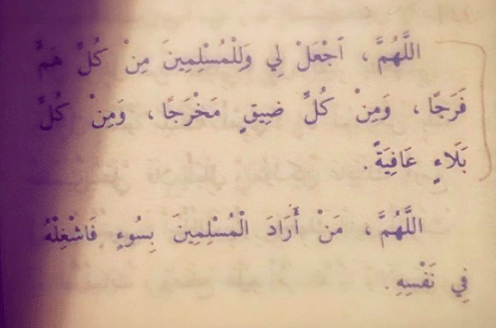 اللَّهُمَّ، اَجْعَلْ لِي وَلِلْمُسْلِمِينَ مِنْ كُلِّ هَمٍّ
فَرَجًا، وَمِنْ كُلِّ ضِيقٍ مَخْرَجًا، وَمِنْ كُلِّ
بَلَاءٍ عَافِيَةً
اللَّهُمَّ، مَنْ أَرَادَ الْمُسْلِمِينَ بِسُوءٍ فَاشْغِلْهُ
فِي نَفْسِهِ.